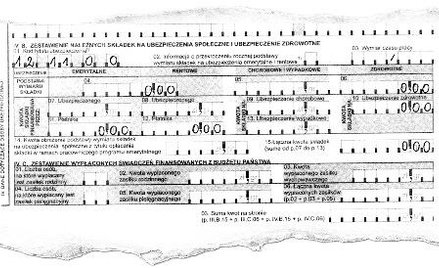 V. B. ZESTAWIENIE NALEŻNYCH SKŁADEK NA UBEZPIECZENIA SPOŁECZNE I UBEZPIECZENIE ZDROWOTNE
01. Kod tytułu ubezpieczenia
02. Informacja o przekroczeniu rocznej podstawy
wymiaru składek na ubezpieczenia emerytalne i rentowe
03. Wymiar czasu pracy
1 2 1 1 0 0
UBEZPIECZENIE EMERYTALNE RENTOWE CHOROBOWE I WYPADKOWE ZDROWOTNE
PODSTAWA WYMIARU SKŁADKI
04. 05. 06.
0,00 0,00
07. Ubezpieczonego 08. Ubezpieczonego 09. Ubezpieczenie chorobowe 10. Ubezpieczenie zdrowotne
0,00
12. Płatnika 13. Ubezpieczenie wypadkowe
0,00 0,00
14. Kwota obniżenia podstawy wymiaru składek
na ubezpieczenia społeczne z tytułu opłacania
składki w ramach pracowniczego programu emerytalnego
15. Łączna kwota składek
(suma od p.07 do p.13)
0,00
IV. C. ZESTAWIENIE WYPŁACONYCH ŚWIADCZEŃ FINANSOWANYCH Z BUDŻETU PAŃSTWA
01. Liczba osób,
na które wypłacany
jest zasiłek rodzinny
02. Kwota wypłaconego
zasiłku rodzinnego
03. Kwota
wypłaconego
zasiłku
wychowawczego
04. Liczba osób,
na które wypłacany jest
zasiłek pielęgnacyjny
05. Kwota wypłaconego
zasiłku pielęgnacyjnego
06. Łączna kwota
wypłaconych zasiłków
(p.02 + p.03 + p.05)
05. Suma kwot na stronie
(p. III.B.15 + p. III.C.06 + p. IV.B.15 + p. IV.C.06)